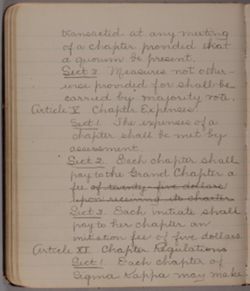 transacted at any meeting
of a chapter provided that
a quoum be present.
Sect 3. Measures not other-
wise provided for shall be
carried by majority vote.
Article V Chapter Expenses
Sect 1. The expenses of a
chapter shall be met by
assessment.
Sect 2. Each chapter shall
pay to the Grand Chapter a
fee of twenty-five dollars
upon receiving its charter
Sect 3. Each initiate shall
pay to her chapter an
initiation fee of five dollars.
Article VI Chapter Regulations
Sect 1. Each chapter of
Sigma Kappa may make